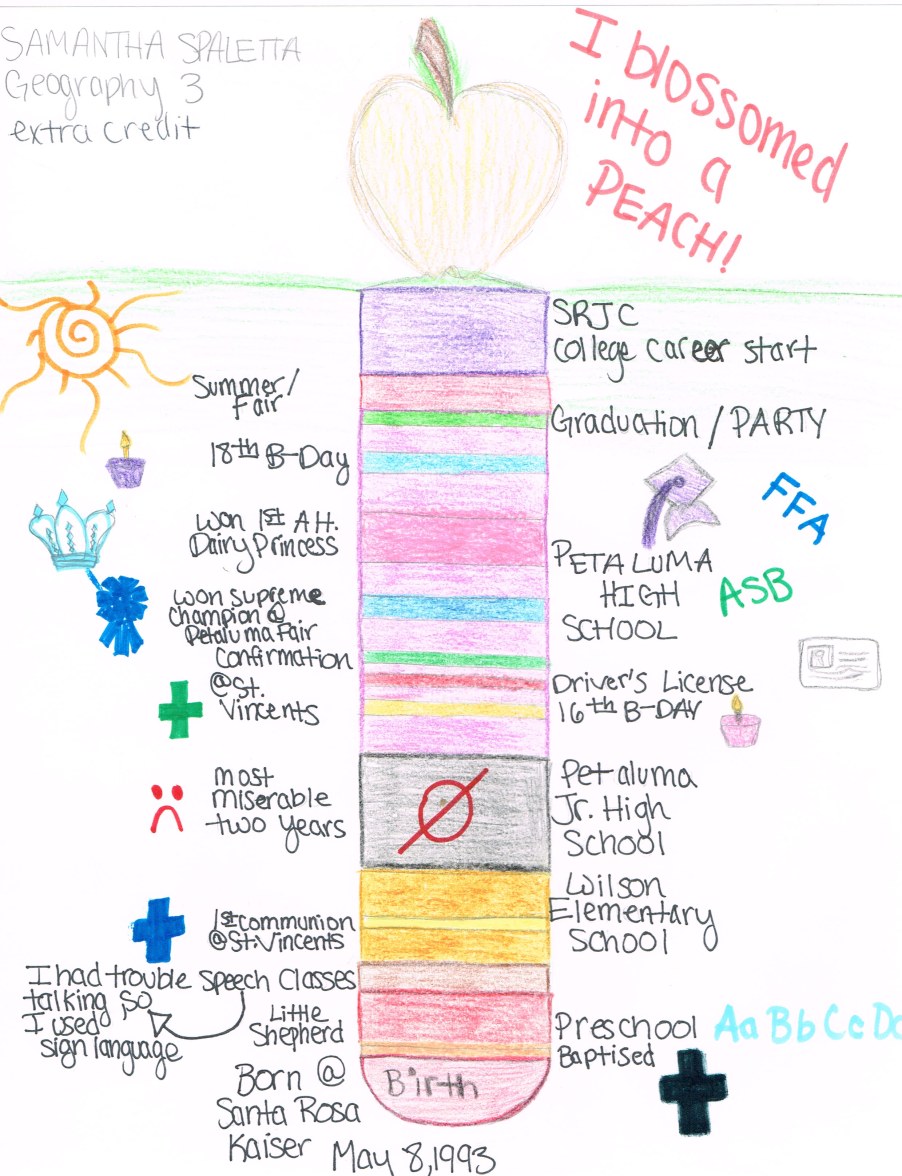 SAMANTHA SPALETTA
Geography 3
extra credit
I blossomed
into a
PEACH!
SRJC
College career start
Summer/
Fair
Graduation / PARTY
18th B-Day
FFA
won 1st A.H.
Dairy Princess
PETALUMA
HIGH
SCHOOL
ASB
won supreme
Champion @
Petaluma Fair
Confirmation
@ St.
Vincents
Driver's License
16th B-DAY
most
miserable
two years
Petaluma
Jr. High
School
Wilson
Elementary
School
1st communion
@ St. Vincents
I had trouble
talking so
I used
sign language
Speech Classes
Little
Shepherd
Preschool
Baptised
Aa Bb Cc Dd
Birth
Born @
Santa Rosa
Kaiser
May 8, 1993